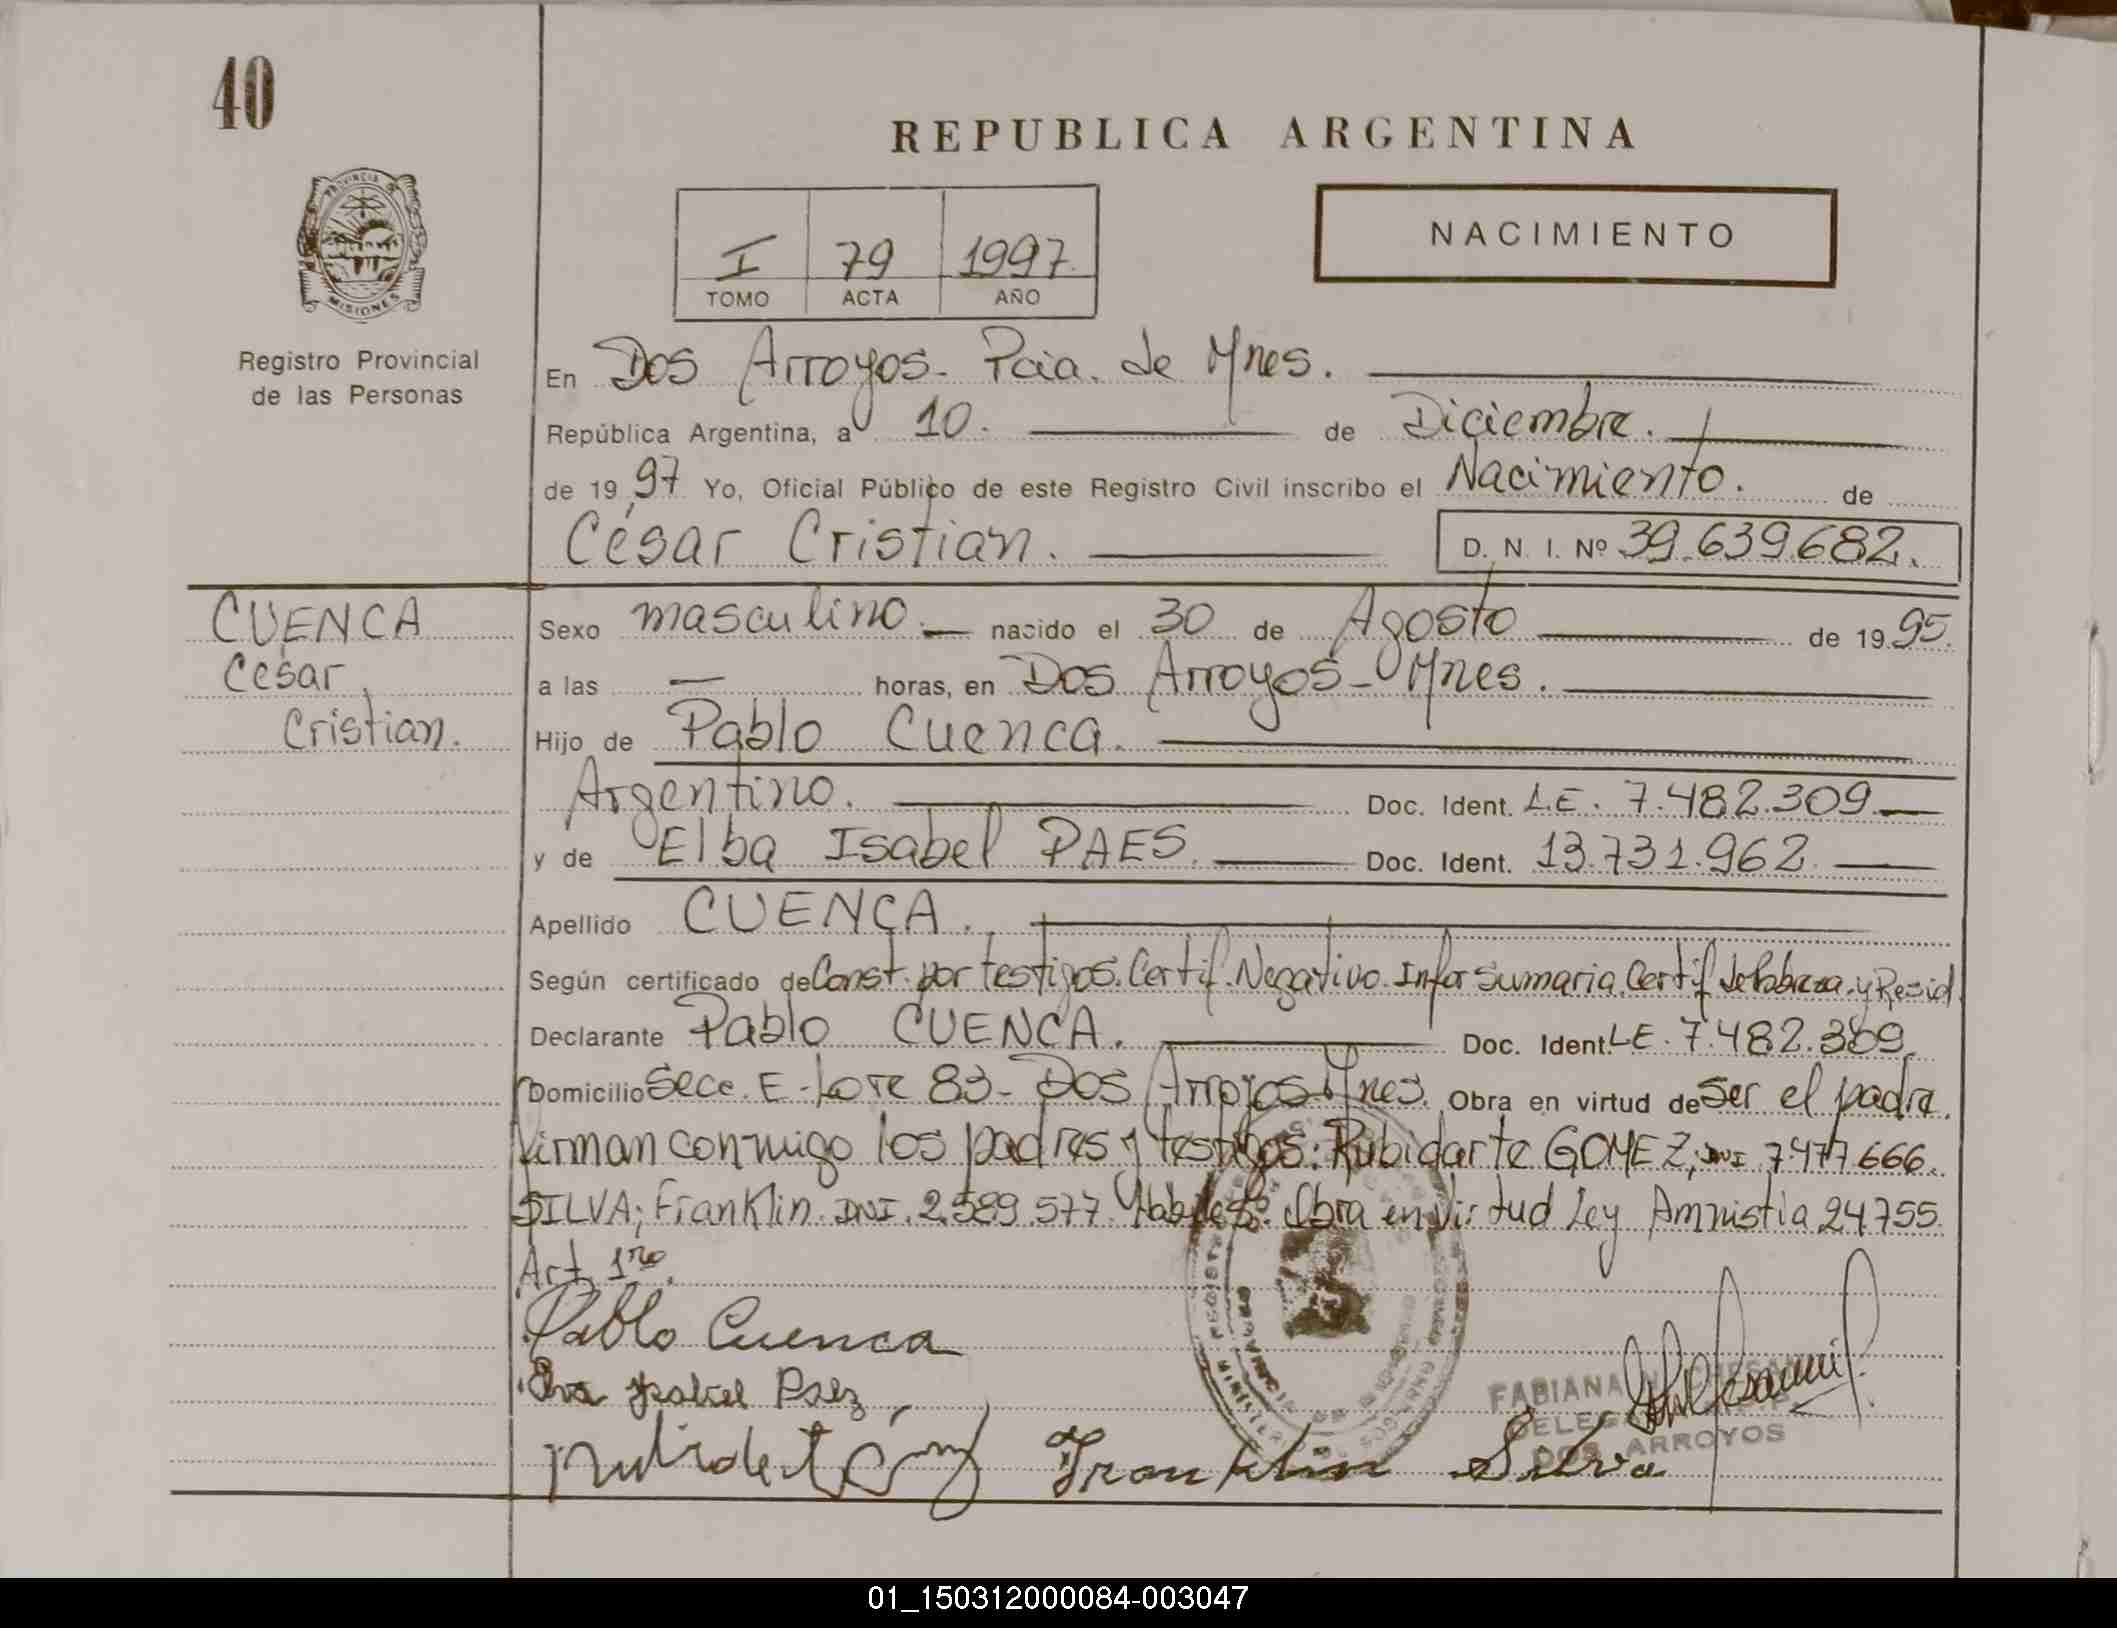 40
REPUBLICA ARGENTINA
PROVINCIA DE
MISIONES
Registro Provincial
de las Personas
I 79 1997
TOMO ACTA AÑO
NACIMIENTO
En Dos Arroyos - Pcia. de Mnes.
República Argentina, a 10. de Diciembre.
de 19 97 Yo, Oficial Público de este Registro Civil inscribo el Nacimiento. de
César Cristian. D. N. I. Nº 39.639.682.
CUENCA
César
Cristian.
Sexo masculino. nacido el 30 de Agosto de 19 95.
a las — horas, en Dos Arroyos - Mnes.
Hijo de Pablo Cuenca.
Argentino. Doc. Ident. L.E. 7.482.309.
y de Elba Isabel PAES. Doc. Ident. 13.731.962
Apellido CUENCA.
Según certificado de Const. por testigos. Certif. Negativo. Infor Sumaria. Certif de Pobreza. y Resid.
Declarante Pablo CUENCA. Doc. Ident. LE. 7.482.309.
Domicilio Secc. E - Lote 83 - Dos Arroyos - Mnes. Obra en virtud de ser el padre.
Firman conmigo los padres y testigos: Rubidarte GOMEZ, DNI 7477666.
SILVA; Franklin. DNI. 2.589.577. Habiles. Obra en Virtud Ley Amnistia 24.755.
Art. 1ro.
Pablo Cuenca
Isabel Paez
Franklin Silva
FABIANA
DOS ARROYOS
01_150312000084-003047